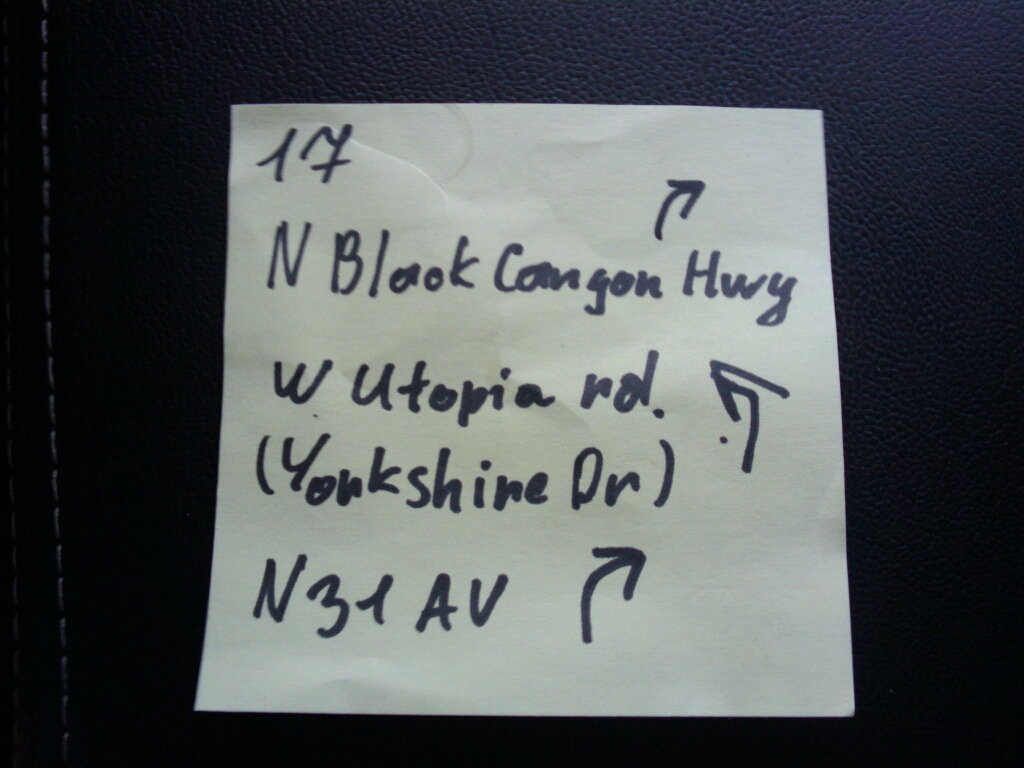 17
N Black Canyon Hwy
W Utopia rd.
(Yorkshire Dr)
N 31 AV